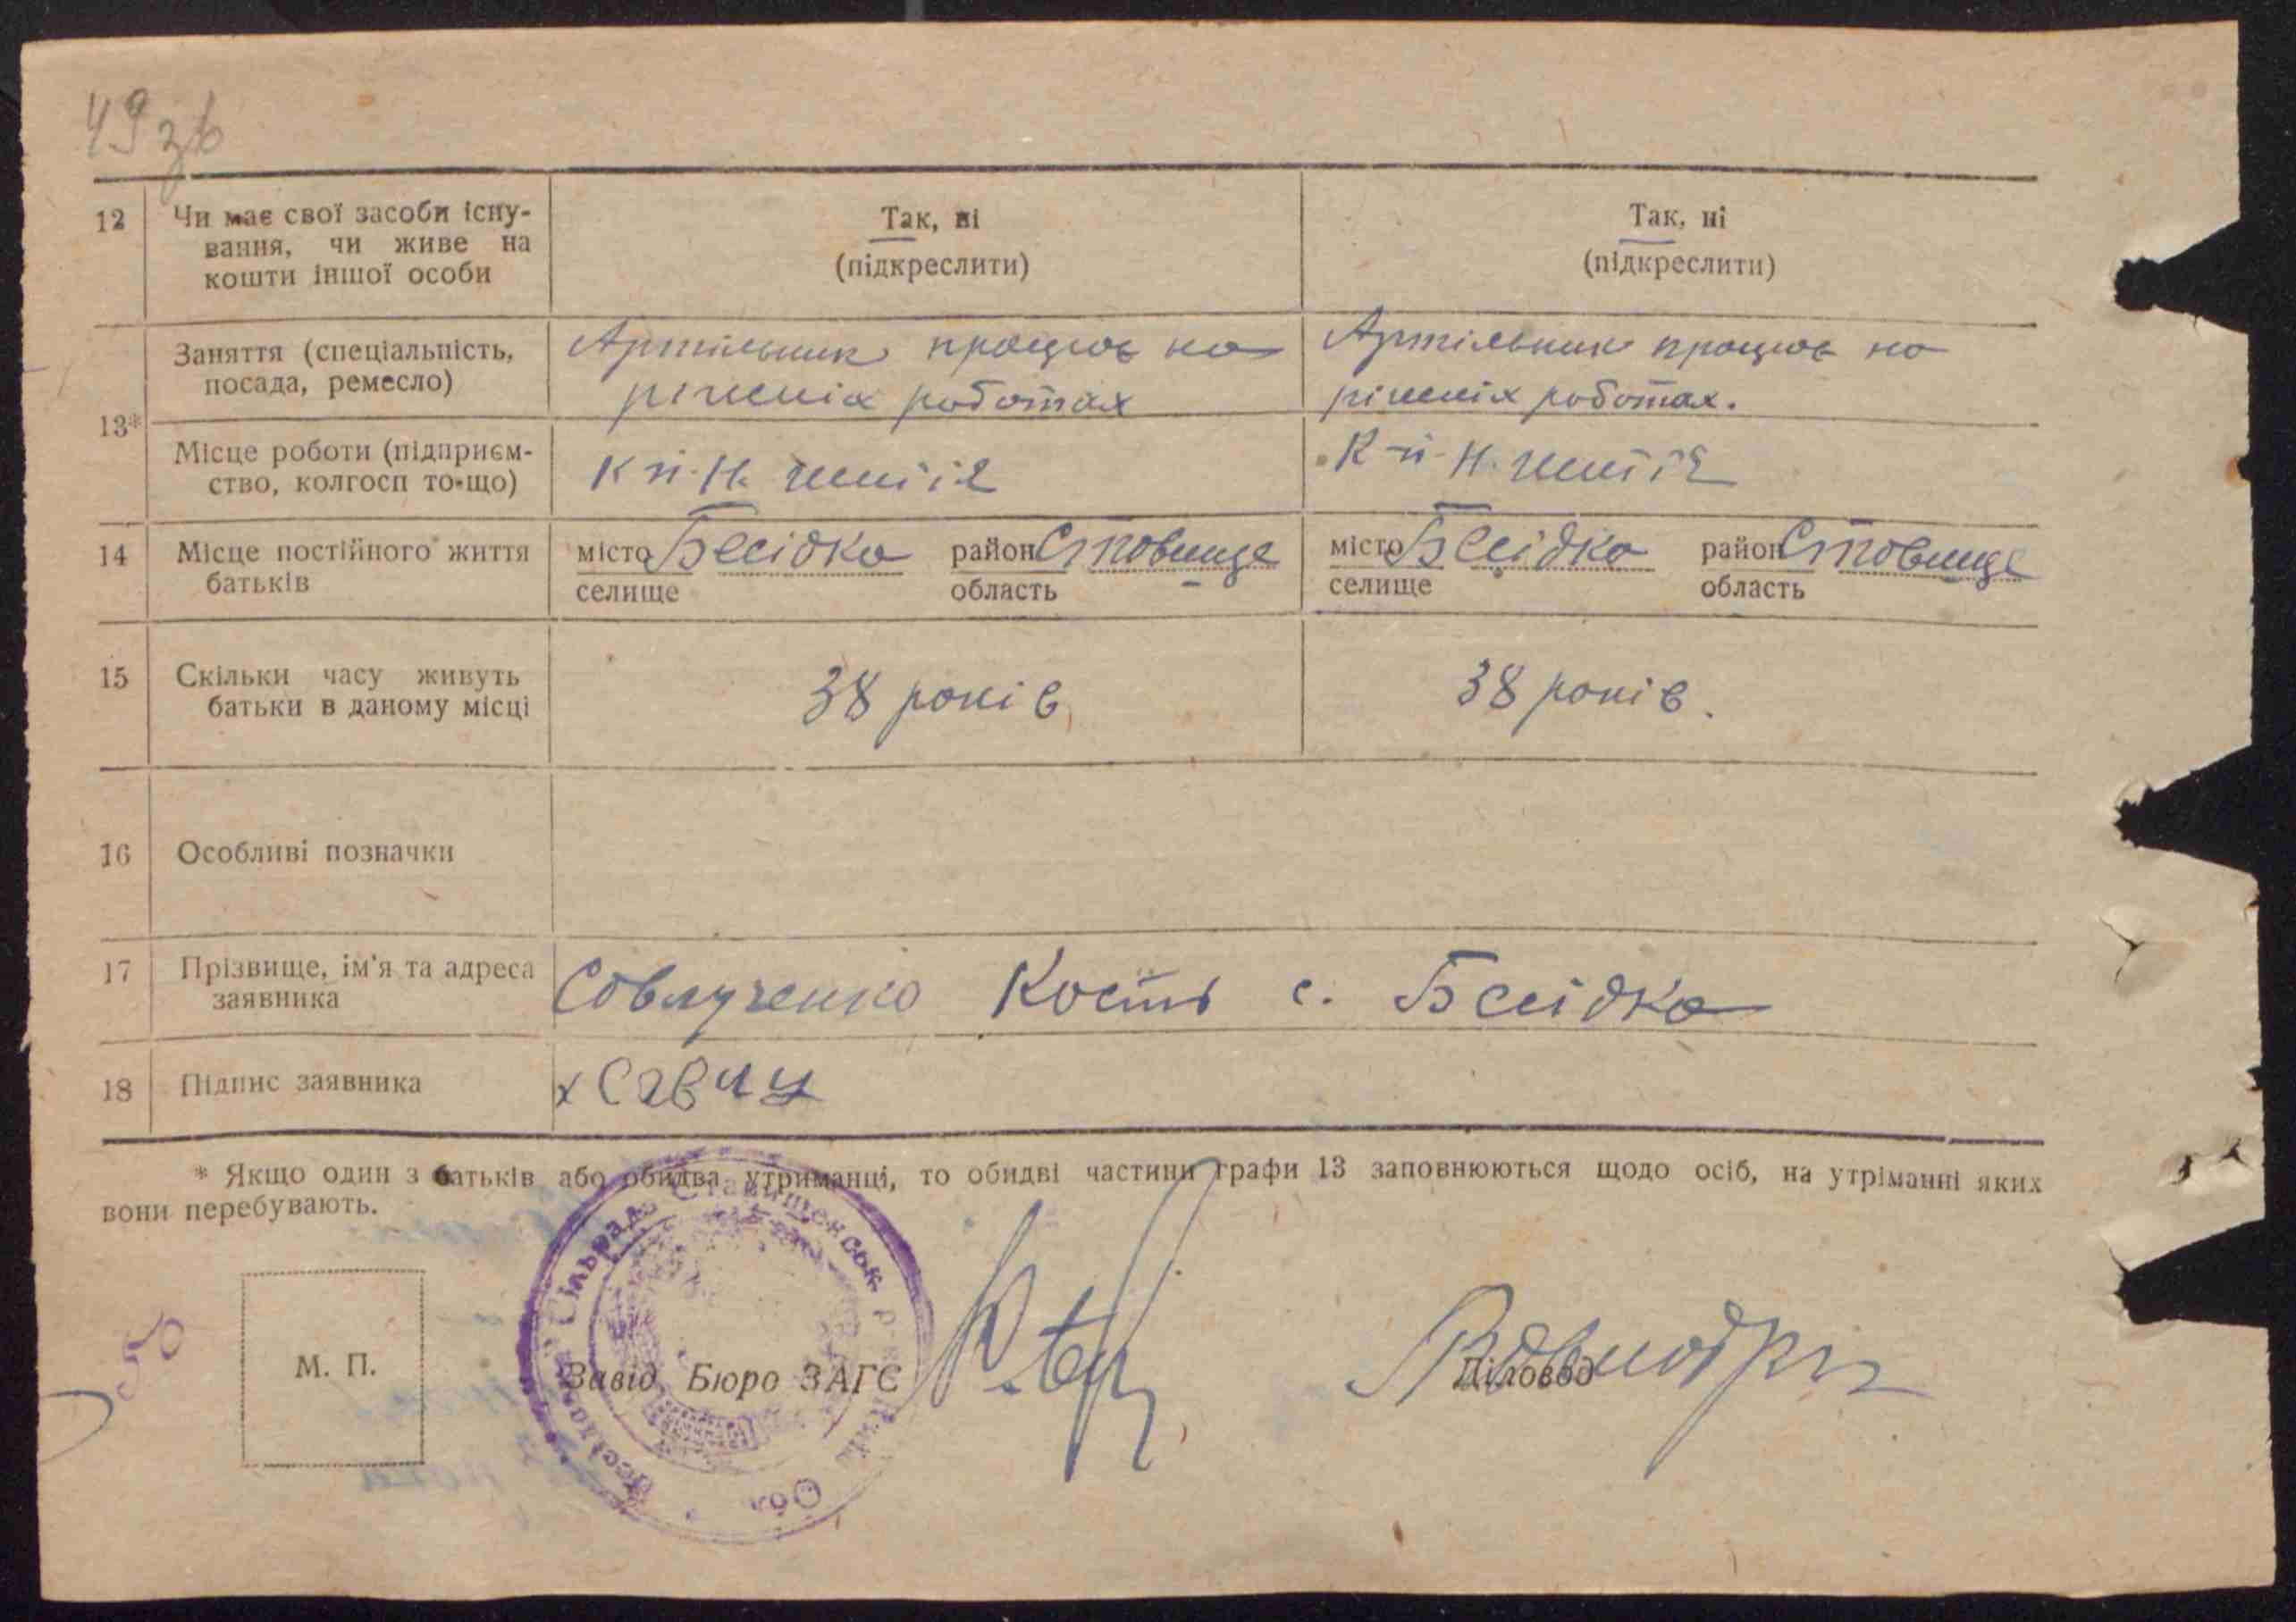 49 зв
12
Чи має свої засоби існу-
вання, чи живе на
кошти іншої особи
Так, ні
(підкреслити)
Так, ні
(підкреслити)
13*
Заняття (спеціальність,
посада, ремесло)
Артільник працює на
різних роботах
Артільник працює на
різних роботах.
Місце роботи (підприєм-
ство, колгосп то-що)
14
Місце постійного життя
батьків
місто Бесідка район Ставище
селище область
місто Бесідка район Ставище
селище область
15
Скільки часу живуть
батьки в даному місці
38 років
38 років.
16
Особливі позначки
17
Прізвище, ім'я та адреса
заявника
Савлученко Кость с. Бесідка
18
Підпис заявника
х Савлу
* Якщо один з батьків або обидва утриманці, то обидві частини графи 13 заповнюються щодо осіб, на утріманні яких
вони перебувають.
М. П.
Завід. Бюро ЗАГС
Діловод
50
Сільрада Ставищенськ
Обл